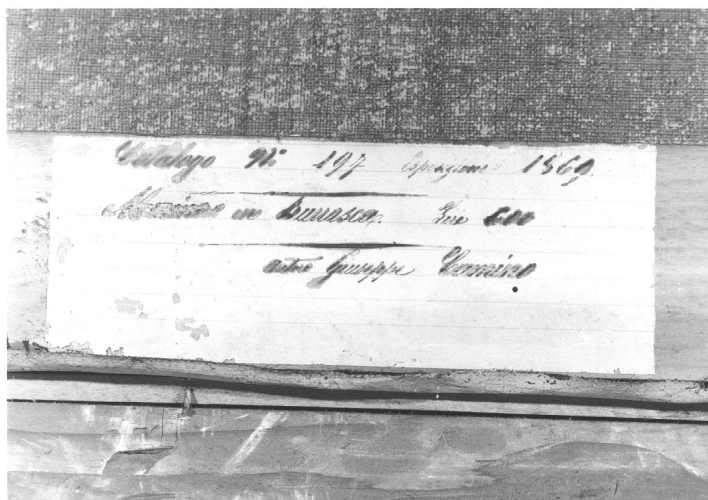 Catalogo N. 197 Esposizione 1869.
Marina in Burrasca. Lire 600
autore Giuseppe Camino